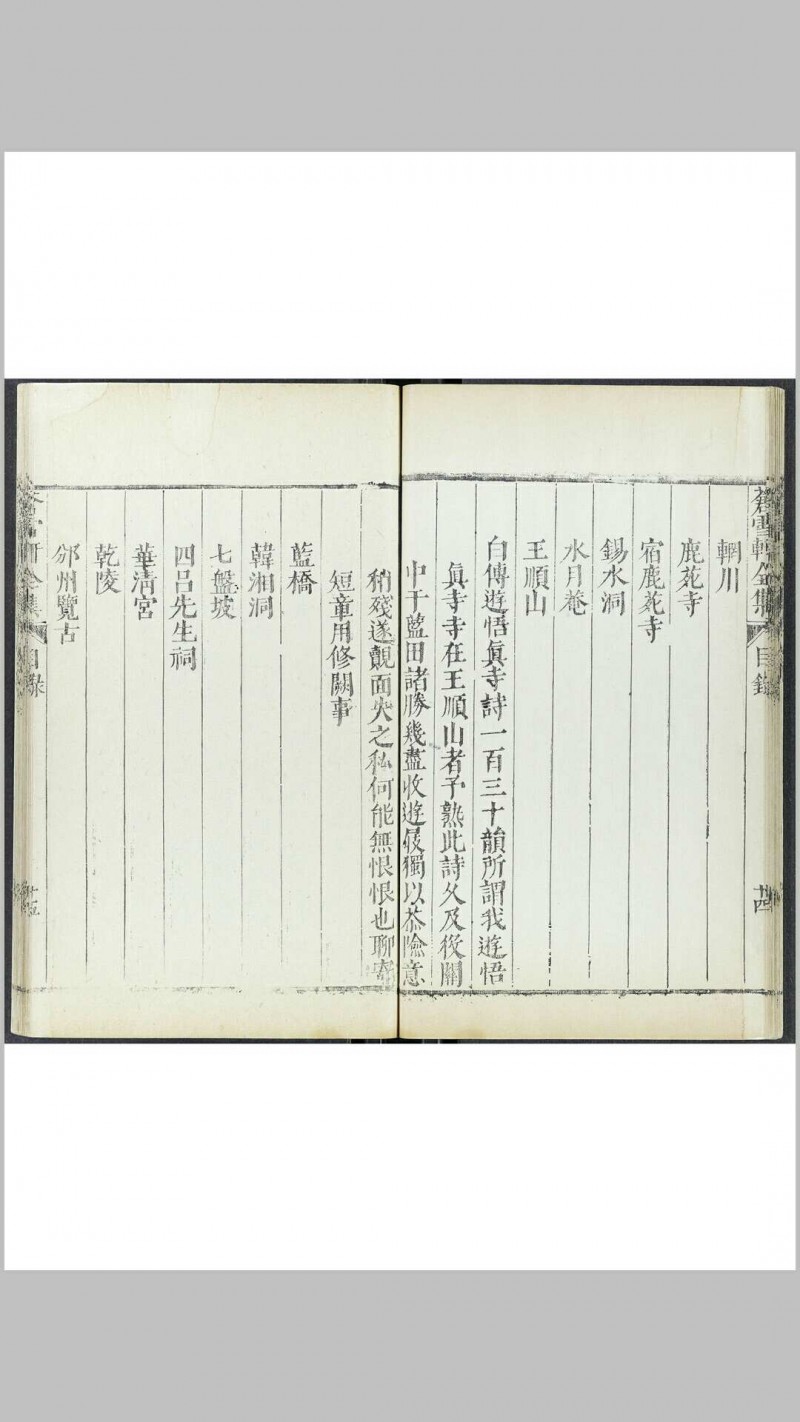 蒼雪軒全集 目錄 廿四
輞川
鹿苑寺
宿鹿苑寺
錫水洞
水月菴
王順山
白傳遊悟真寺詩一百三十韻所謂我遊悟
真寺寺在王順山者予熟此詩久及役關
中于藍田諸勝幾盡收遊屐獨以恭險意
稍殘遂覿面失之私何能無恨恨也聊寄
短章用修闕事
藍橋
韓湘洞
七盤坡
四呂先生祠
華清宮
乾陵
邠州覽古
蒼雪軒全集 目錄 廿五